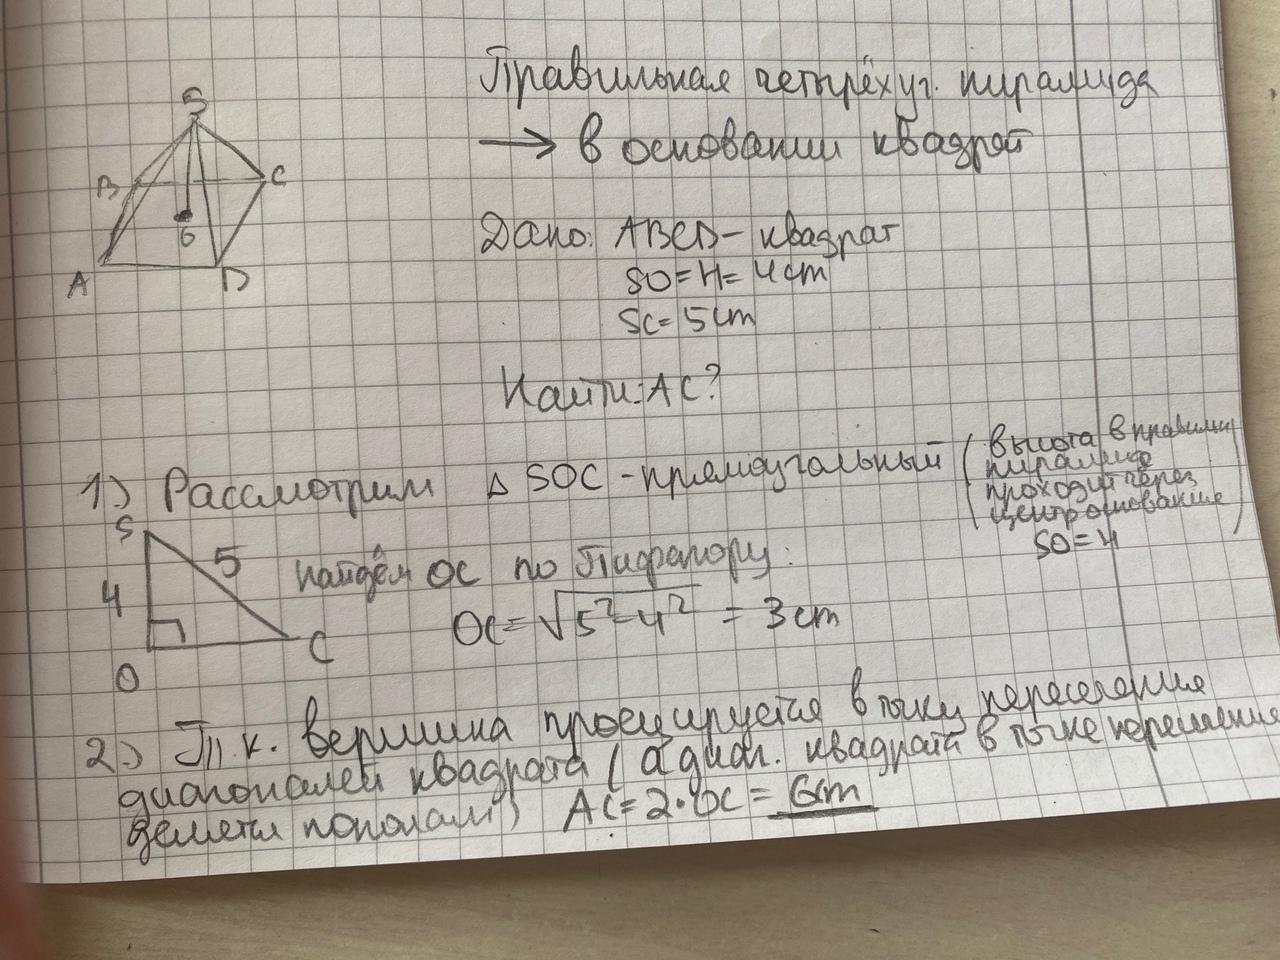 Правильная четырёхуг. пирамида
→ в основании квадрат
S
B
C
O
A
D
Дано: ABCD - квадрат
SO = H = 4 cm
SC = 5 cm
Найти: AC?
1) Рассмотрим △ SOC - прямоугольный (высота в правильн
пирамиде
проходит через
центр основание)
SO = H
S
5
4
O
C
Найдём OC по Пифагору:
OC = √5² - 4² = 3 cm
2) Т.к. вершина проецируется в точку пересечения
диагоналей квадрата (а диаг. квадрата в точке пересечения
делятся пополам) AC = 2 · OC = 6 cm